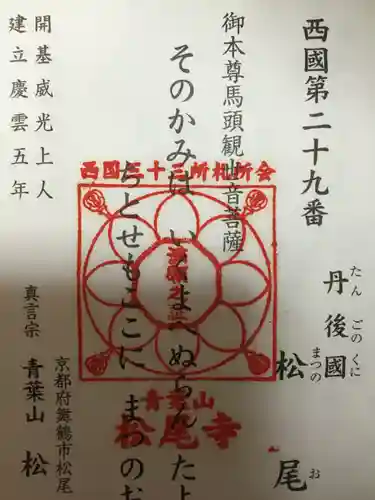 西國第二十九番
丹後國
たんごのくに
松尾
まつのお
御本尊馬頭観世音菩薩
そのかみは いくよへぬらん たよ
ちとせもここに まつのお
開基威光上人
建立慶雲五年
真言宗 青葉山 松
京都府舞鶴市松尾
西国三十三所札所会
青葉山
松尾寺